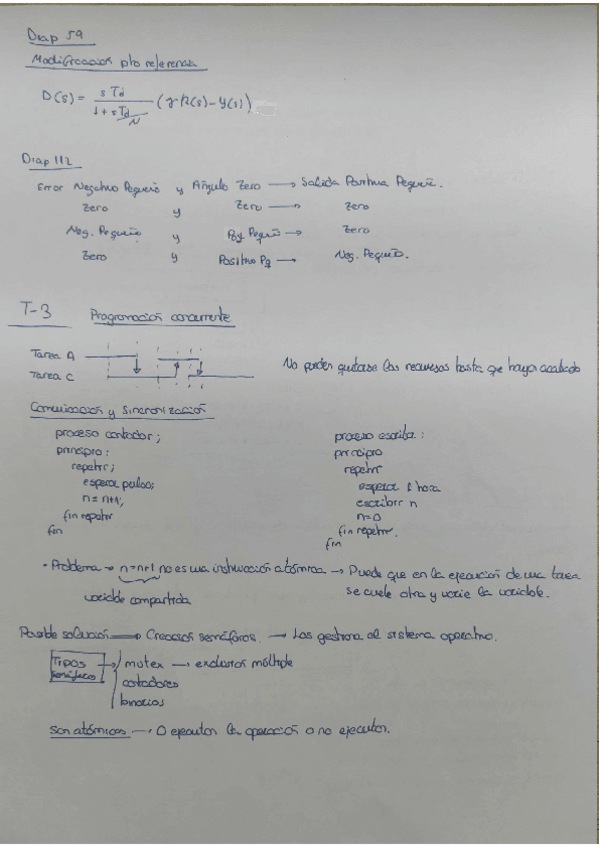 Diap 59
Modificación pto referencia
D(s) = s Td / 1 + s Td/N (γ R(s) - Y(s))
Diap 112
Error Negativo Pequeño y Ángulo Zero → Salida Positiva Pequeñ.
Zero y Zero → Zero
Neg. Pequeño y Pos Pequeñ → Zero
Zero y Positivo Pq → Neg. Pequeño.
T-3 Programación concurrente
Tarea A
Tarea C
No pueden quitarse los recursos hasta que haya acabado
Comunicación y Sincronización
proceso contador;
principio:
repetir;
esperar pulso;
n = n+1;
fin repetir
fin
proceso escriba:
principio
repetir
esperar 1 hora
escribir n
n=0
fin repetir.
fin
· Problema → n=n+1 no es una instrucción atómica → Puede que en la ejecución de una tarea
se cuele otra y varíe la variable.
variable compartida
Posible solución → Creación semáforos. → Los gestiona el sistema operativo.
Tipos semáforos → mutex → exclusión múltiple
contadores
binarios
Son atómicos → O ejecutan la operación o no ejecutan.